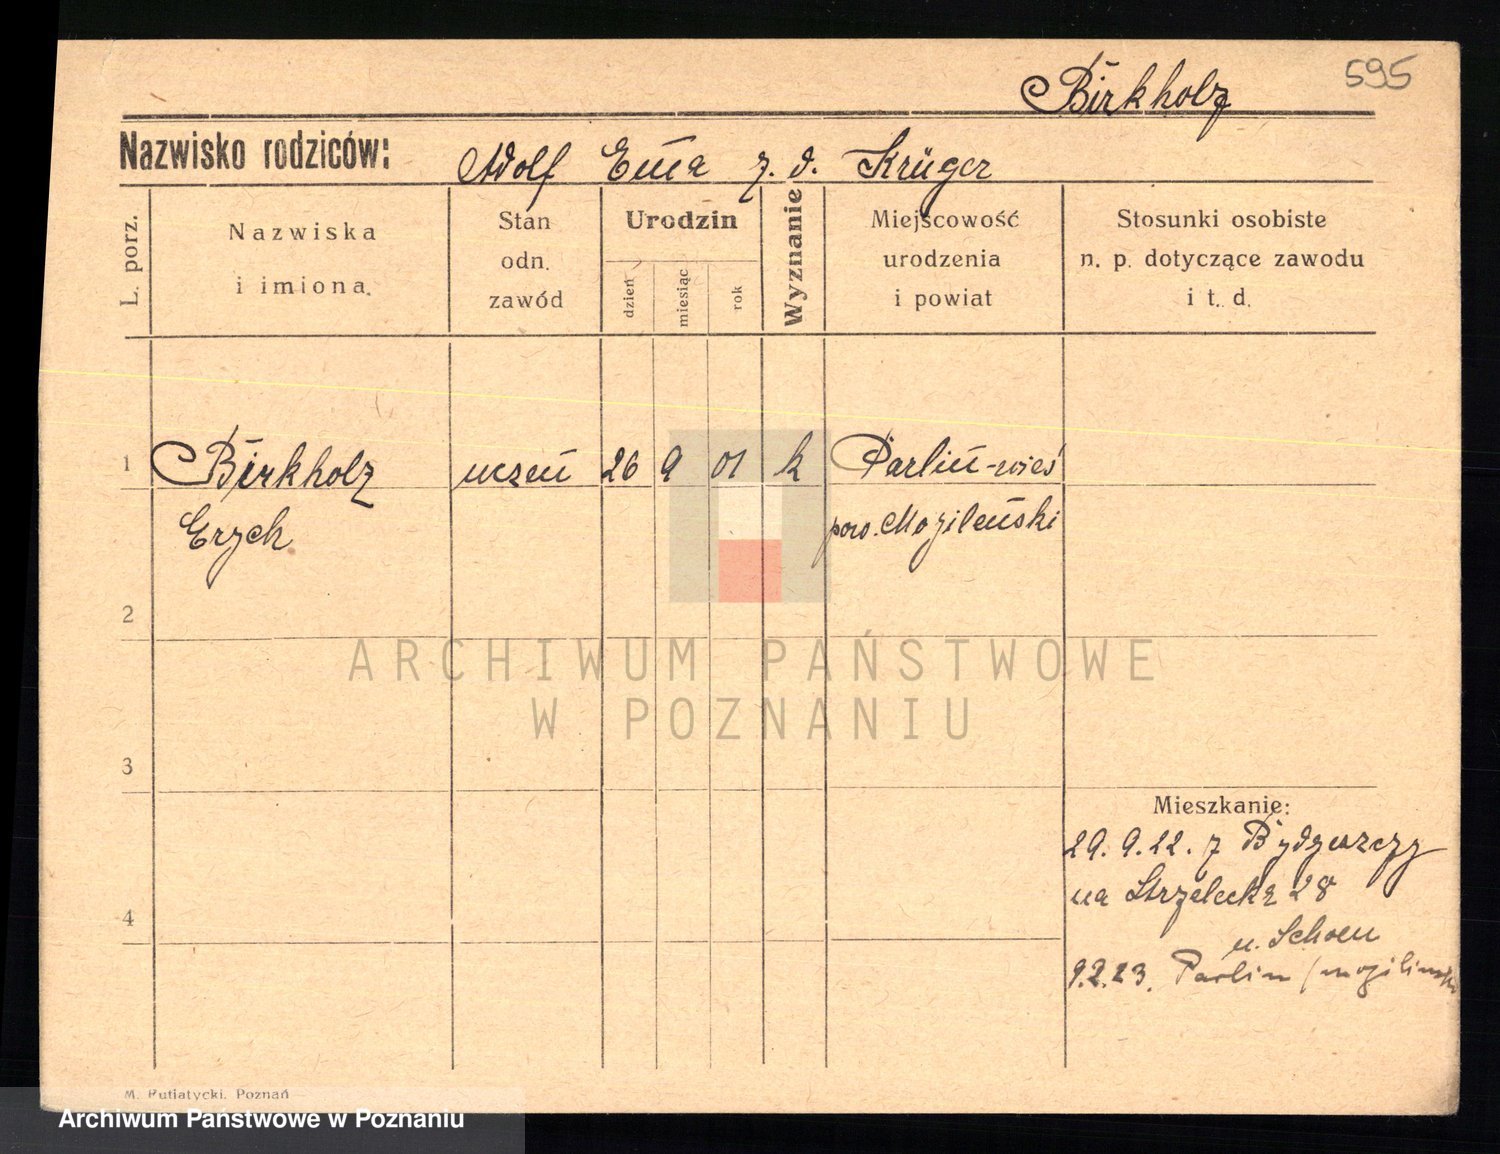 595
Birkholz
Nazwisko rodziców: Adolf Ema z. d. Krüger
L. porz.
Nazwiska
i imiona.
Stan
odn.
zawód
Urodzin
dzień
miesiąc
rok
Wyznanie
Miejscowość
urodzenia
i powiat
Stosunki osobiste
n. p. dotyczące zawodu
i t. d.
1 Birkholz uczeń 26 9 01 k Parlin-wieś
Erych pow. Mogileński
2
ARCHIWUM PAŃSTWOWE
W POZNANIU
3
Mieszkanie:
29. 9. 22. z Bydgoszczy
na Strzelecka 28
4
u. Schoen
9.2.23. Parlin
M. Putiatycki, Poznań
Archiwum Państwowe w Poznaniu